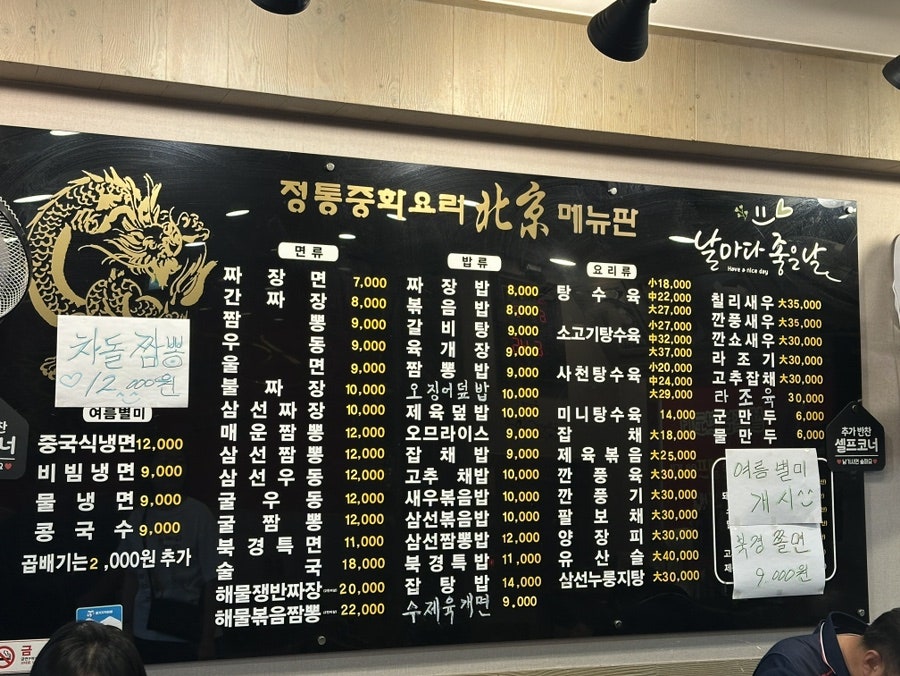 정통중화요리 北京 메뉴판
날마다 좋은날
Have a nice day
차돌 짬뽕
♡12,000원
여름별미
중국식냉면 12,000
비빔냉면 9,000
물냉면 9,000
콩국수 9,000
곱배기는 2,000원 추가
면류
짜장면 7,000
간짜장 8,000
짬뽕 9,000
우동 9,000
울면 9,000
불짜장 10,000
삼선짜장 10,000
매운짬뽕 12,000
삼선짬뽕 12,000
삼선우동 12,000
굴우동 12,000
굴짬뽕 12,000
북경특면 11,000
술국 18,000
해물쟁반짜장 20,000
해물볶음짬뽕 22,000
밥류
짜장밥 8,000
볶음밥 8,000
갈비탕 9,000
육개장 9,000
짬뽕밥 9,000
오징어덮밥 10,000
제육덮밥 10,000
오므라이스 9,000
잡채밥 9,000
고추잡채밥 10,000
새우볶음밥 10,000
삼선볶음밥 10,000
삼선짬뽕밥 12,000
북경특밥 11,000
잡탕밥 14,000
수제육개면 9,000
요리류
탕수육 小18,000
中22,000
大27,000
소고기탕수육 小27,000
中32,000
大37,000
사천탕수육 小20,000
中24,000
大29,000
미니탕수육 14,000
잡채 大18,000
제육볶음 大25,000
깐풍육 大30,000
깐풍기 大30,000
팔보채 大30,000
양장피 大30,000
유산슬 大40,000
삼선누룽지탕 大30,000
칠리새우 大35,000
깐풍새우 大35,000
깐쇼새우 大30,000
라조기 大30,000
고추잡채 大30,000
라조육 30,000
군만두 6,000
물만두 6,000
여름별미
개시
북경 쫄면
9,000원
추가 반찬
셀프코너
남기시면 슬퍼요
금